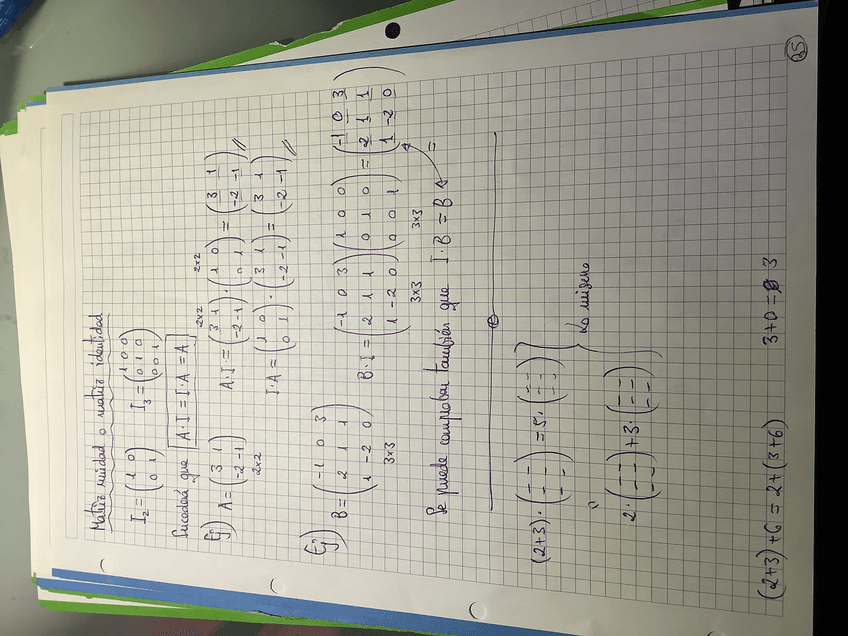 Matriz unidad o matriz identidad
I₂ = (1 0 / 0 1) I₃ = (1 0 0 / 0 1 0 / 0 0 1)
Sucederá que A·I = I·A = A
Ej) A = (3 1 / -2 -1) 2x2 A·I = (3 1 / -2 -1) 2x2 · (1 0 / 0 1) 2x2 = (3 1 / -2 -1) //
I·A = (1 0 / 0 1) · (3 1 / -2 -1) = (3 1 / -2 -1) //
Ej) B = (-1 0 3 / 2 1 1 / 1 -2 0) 3x3 B·I = (-1 0 3 / 2 1 1 / 1 -2 0) 3x3 (1 0 0 / 0 1 0 / 0 0 1) 3x3 = (-1 0 3 / 2 1 1 / 1 -2 0)
Se puede comprobar también que I·B = B =
(2+3)· (-- / -- / --) = 5· (-- / -- / --)
"
2· (-- / -- / --) + 3· (-- / -- / --)
Lo mismo
(2+3)+6 = 2+(3+6) 3+0 = 3
25